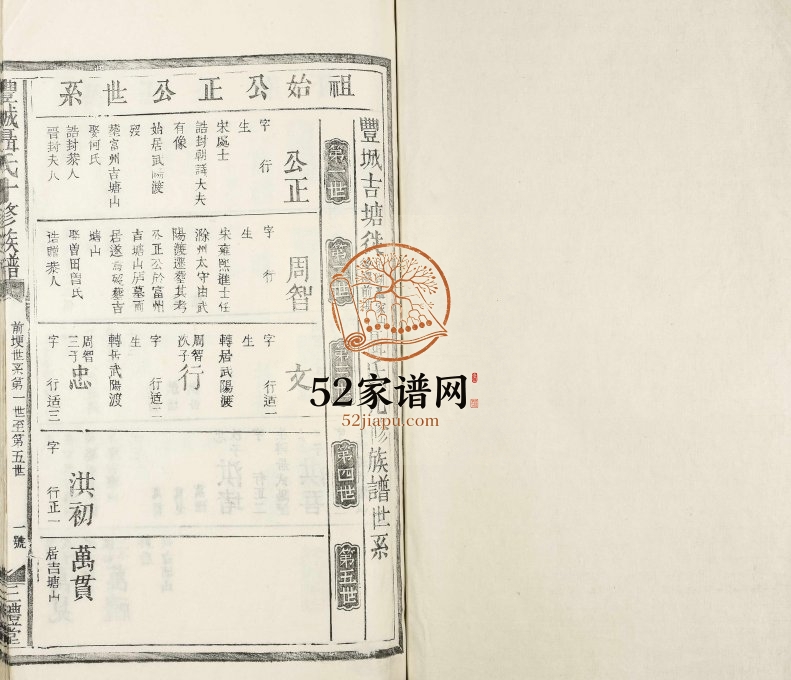 始祖公正公世系
第一世
公正
字 行
生
宋處士
誥封朝議大夫
有像
始居武陽渡
歿
葬富州吉塘山
娶何氏
誥封恭人
晉封夫人
周智
字 行
生
宋雍熙進士任
滁州太守由武
陽渡遷塋其考
公正公於富州
吉塘山廬墓而
居遂
塘山
娶曽田曽氏
誥贈恭人
文
字 行适一
生
轉居武陽渡
周智二
次子行
字 行适二
生
轉居武陽渡
周智
三子忠
字 行适三
第四世
洪初
字 行正一
第五世
萬貫
居吉塘山
豐城聶氏十修族譜
前埂世系第一世至第五世
一號
三禮堂
52家谱网
52jiapu.com